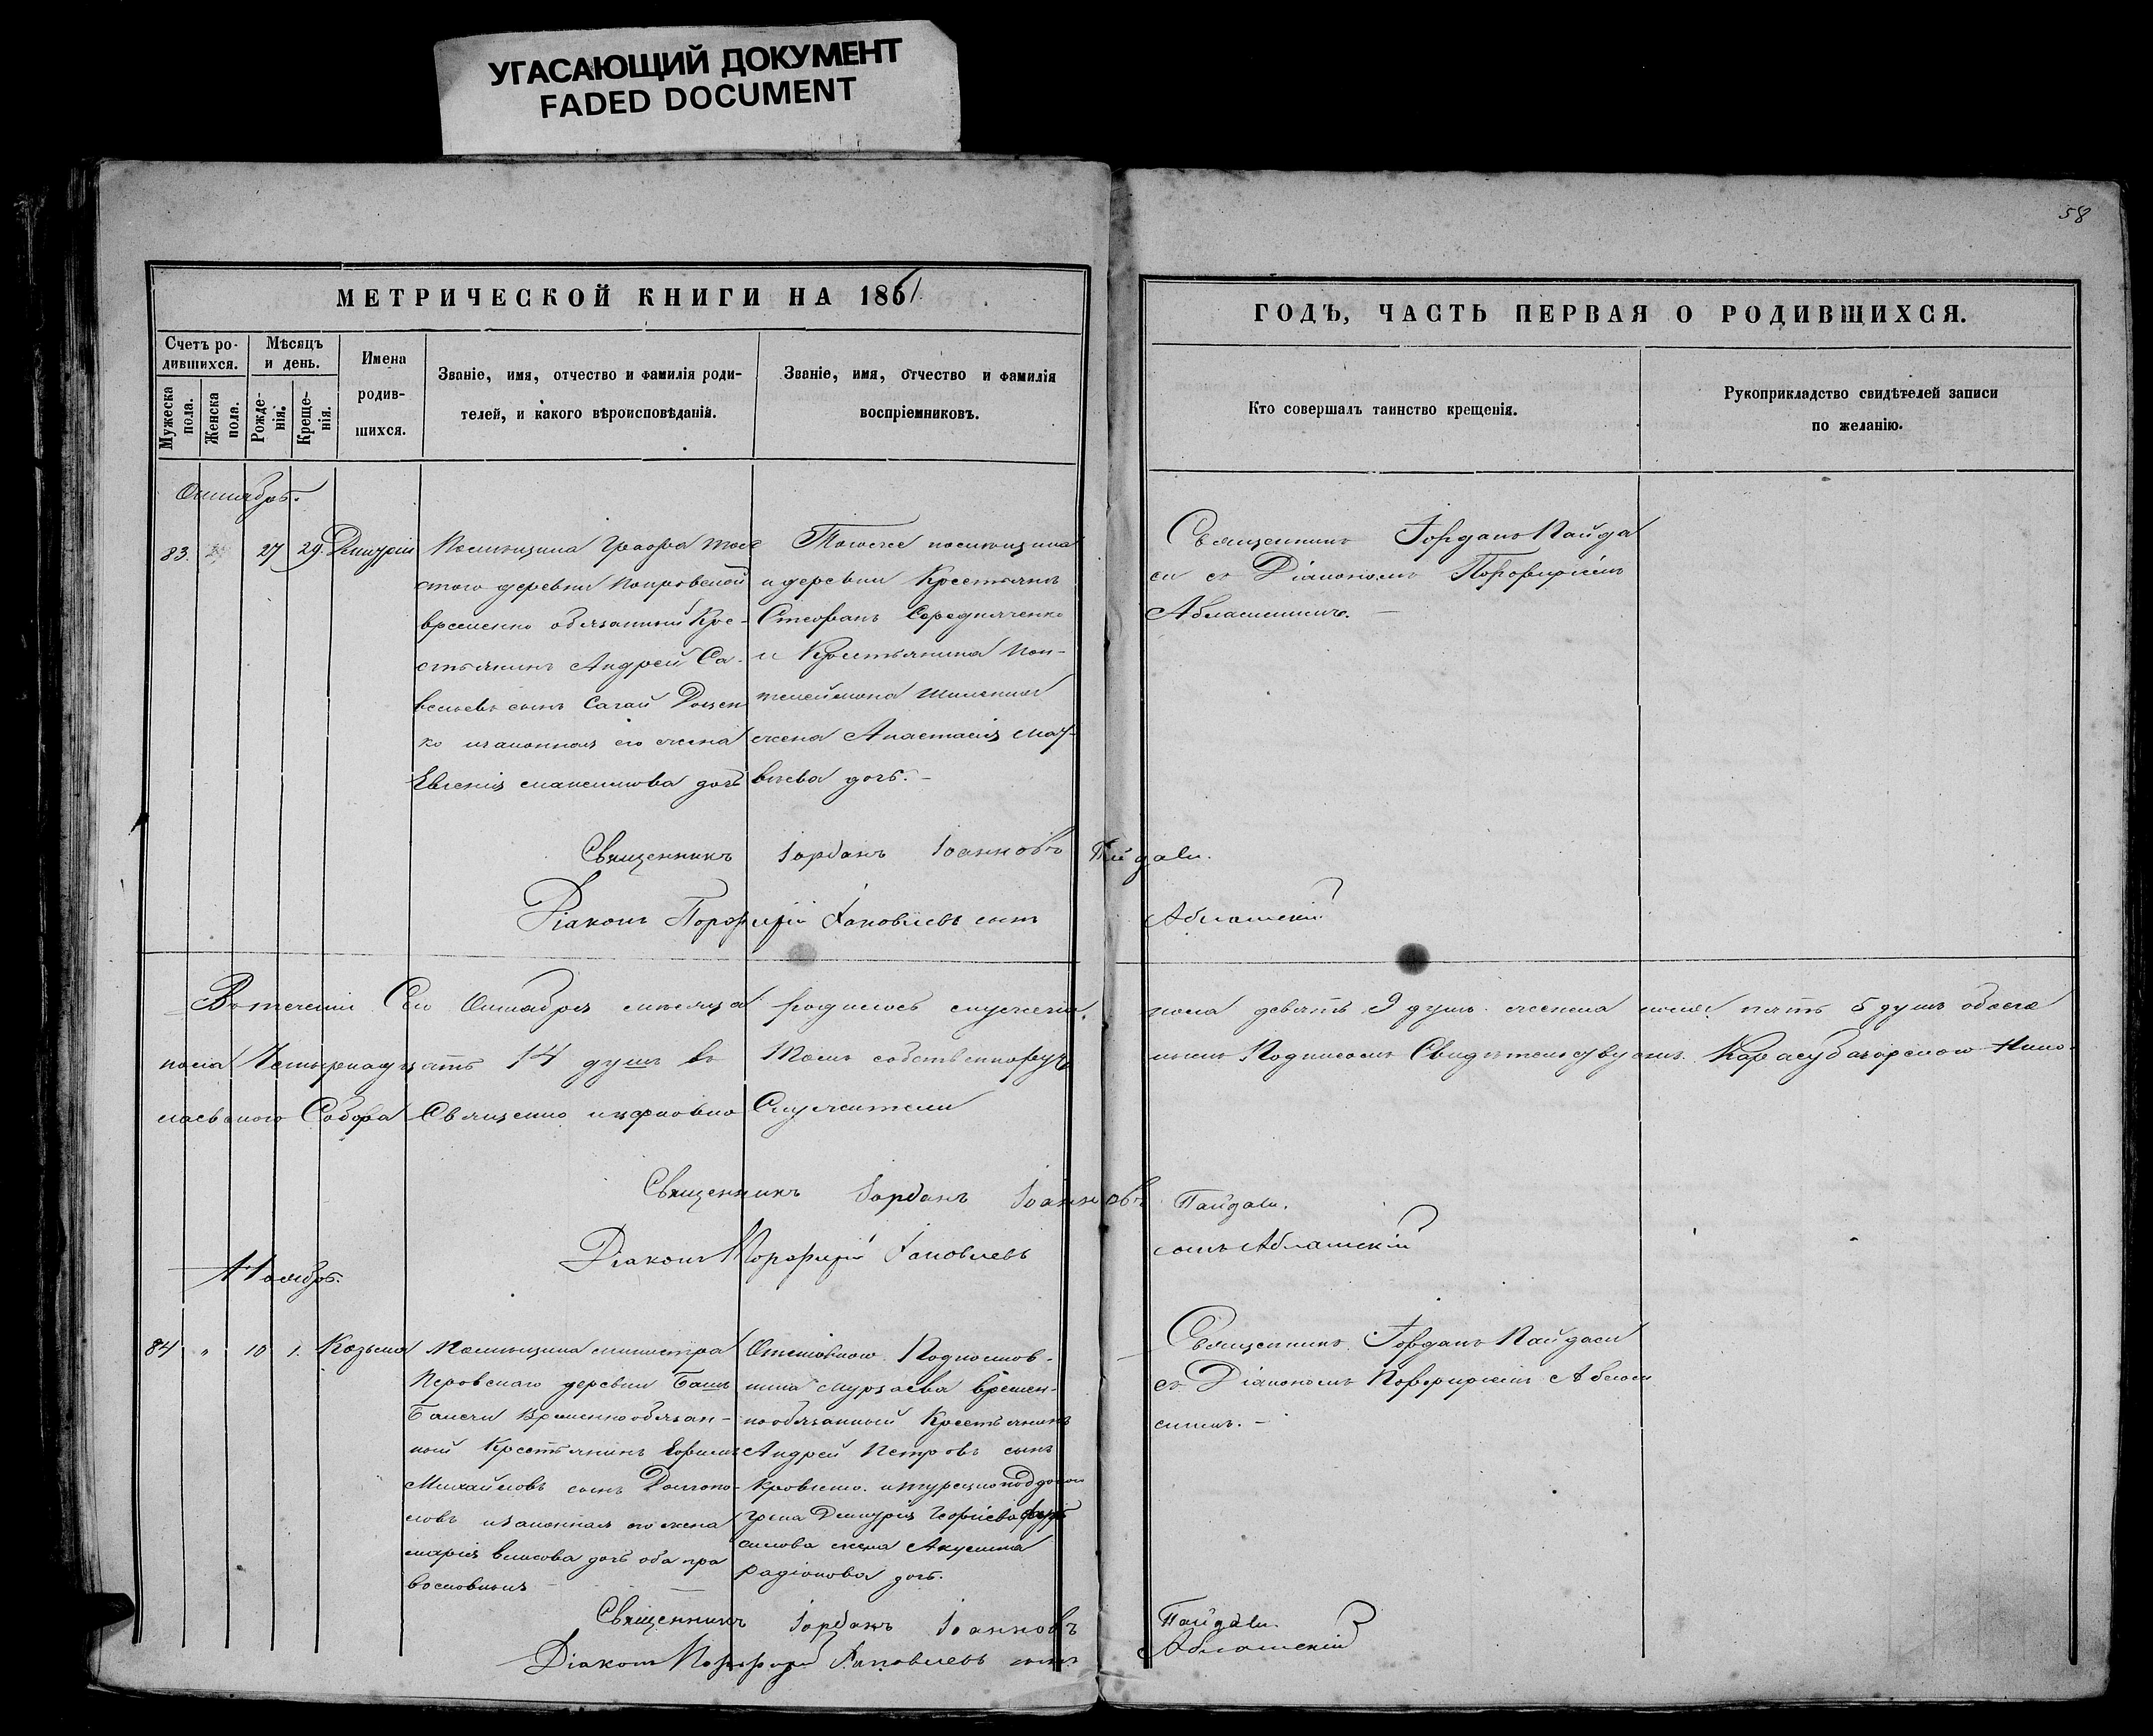 УГАСАЮЩИЙ ДОКУМЕНТ
FADED DOCUMENT
58
МЕТРИЧЕСКОЙ КНИГИ НА 1861
ГОДЪ, ЧАСТЬ ПЕРВАЯ О РОДИВШИХСЯ.
Счетъ ро-
дившихся.
Мужеска пола.
Женска пола.
Мѣсяцъ
и день.
Рожде-
нія.
Креще-
нія.
Имена
родив-
шихся.
Званіе, имя, отчество и фамилія роди-
телей, и какого вѣроисповѣданія.
Званіе, имя, отчество и фамилія
воспріемниковъ.
Кто совершалъ таинство крещенія.
Рукоприкладство свидѣтелей записи
по желанію.
Октябрь.
83. 27 29. Димитрій
Помѣщика Графа
стого деревни
временно обязанный Кре-
стьянинъ Андрей Са-
вельевъ сынъ Сагай Доцен
ко изаконная его жена
Евгенія Максимова дочь
Тогоже помѣщика
и деревни Крестьянъ
Стефанъ Середниченко
и Крестьянина Пан-
телеймона
жена Анастасія Мат-
вѣева дочь.-
Священникъ Іорданъ Пайда
си съ Діакономъ Порфиріемъ
Абламскимъ.
Священникъ Іорданъ Іоанновъ Пайдаси.
Діаконъ Порфирій Іаковлевъ сынъ Абламскій
Въ теченіи Сего Октября мѣсяца родилось мужеска. пола девять 9 душъ. женска пола. пять 5 душъ обоего
пола Четырнадцять 14 душъ въ томъ собственноруч нымъ Подписомъ Свидѣтельствуемъ. Карасубазарскаго Нико-
лаевского Собора Священно ицерковно Служители
Священникъ Іорданъ Іоанновъ Пайдаси.
Діаконъ Порфирій Іаковлевъ сынъ Абламскій
Ноябрь.
84 " 10 1. Козьма
Помѣщика министра
Перовскаго деревни Башъ
Временнообязан-
ный Крестьянинъ Ефимъ
Михайловъ сынъ Долгопо-
ловъ изаконная его жена
марія власова дочь оба пра
вославныя
Отставного Подполков-
ника мурзаева времен-
нообязанный Крестьянинъ
Андрей Петровъ сынъ
грека Димитрія
жена Акулина
радіонова дочь.
Священникъ Іорданъ Пайдаси
съ Діакономъ Порфиріемъ Аблам
скимъ.-
Священникъ Іорданъ Іоанновъ Пайдаси.
Діаконъ Порфирій Іаковлевъ сынъ Абламскій